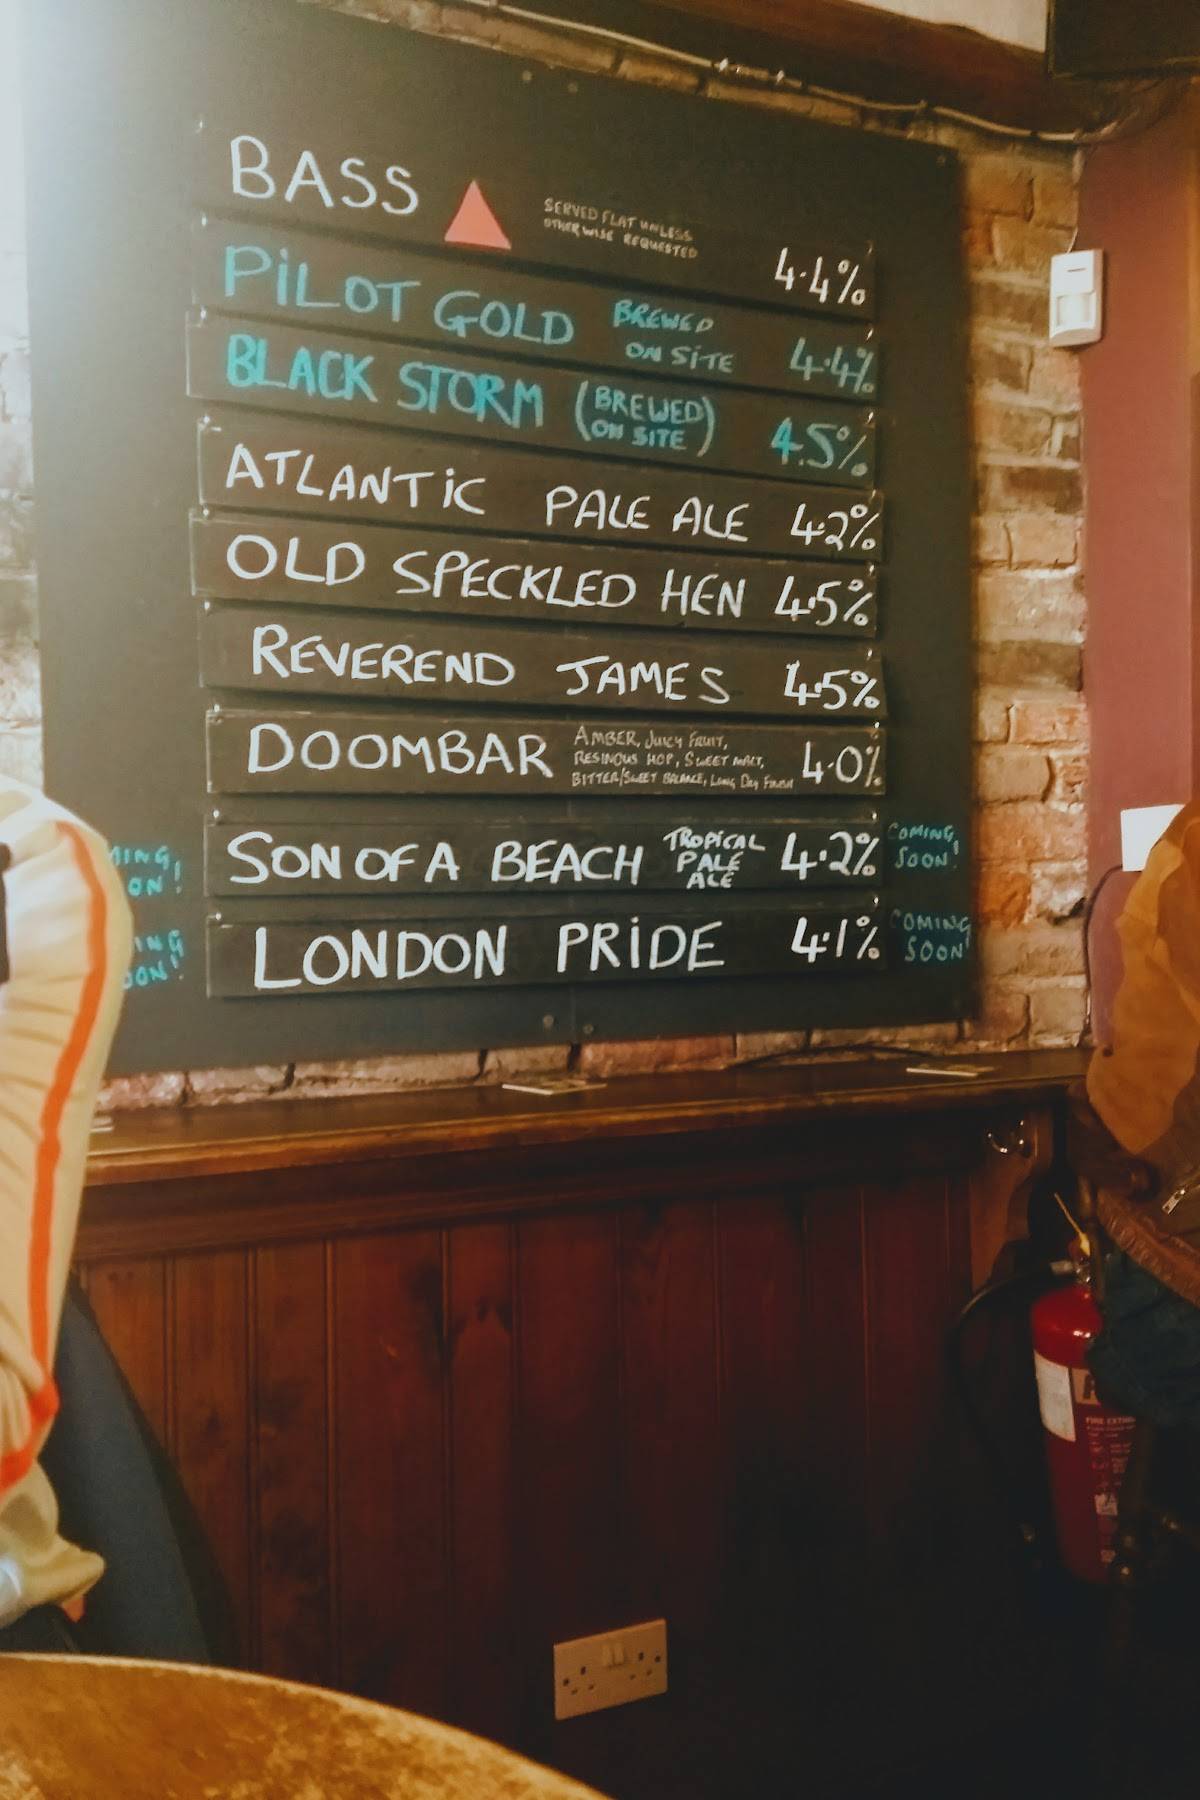 BASS
SERVED FLAT UNLESS
OTHERWISE REQUESTED
4.4%
PiLOT GOLD
BREWED
ON SiTE
4.4%
BLACK STORM
(BREWED
ON SITE)
4.5%
ATLANTiC PALE ALE 4.2%
OLD SPECKLED HEN 4.5%
REVEREND JAMES 4.5%
DOOMBAR
AMBER, JUICY FRUIT,
RESINOUS HOP, SWEET MALT,
BITTER/SWEET BALANCE, LONG DRY FINISH
4.0%
SON OF A BEACH
TROPICAL
PALE
ALE
4.2%
COMING,
SOON!
LONDON PRiDE 4.1%
COMING
SOON!
MING,
ON!
ING
OON!
FIRE EXTIN